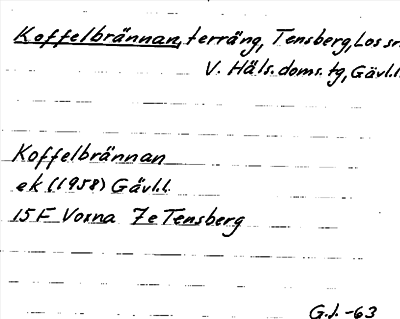 Koffelbrännan, terräng, Tensberg, Los sn
V. Häls. doms. tg, Gävl.l.
Koffelbrännan
ek (1958) Gävl.l.
15 F Voxna 7e Tensberg
G.J. -63